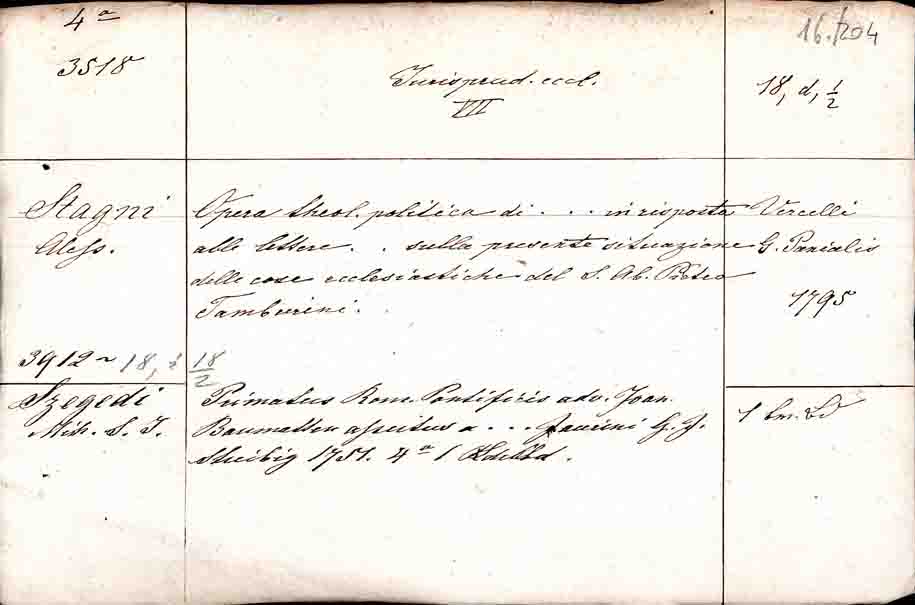 4a
3518
Jurisprud. eccl.
VII
16.204
18, d, 1/2
Stagni
Aless.
Opera theol. politica di . . . in risposta
alle lettere . . sulla presente situazione
delle cose ecclesiastiche del S. Ab. Pietro
Tamburini.
Vercelli
G. Panialis
1795
3912 ~ 18, 18/2
Szegedi
Mich. S. J.
Primatus Rom. Pontificis adv. Joan.
a . . . Jaurini G. J.
1751. 4a 1
1